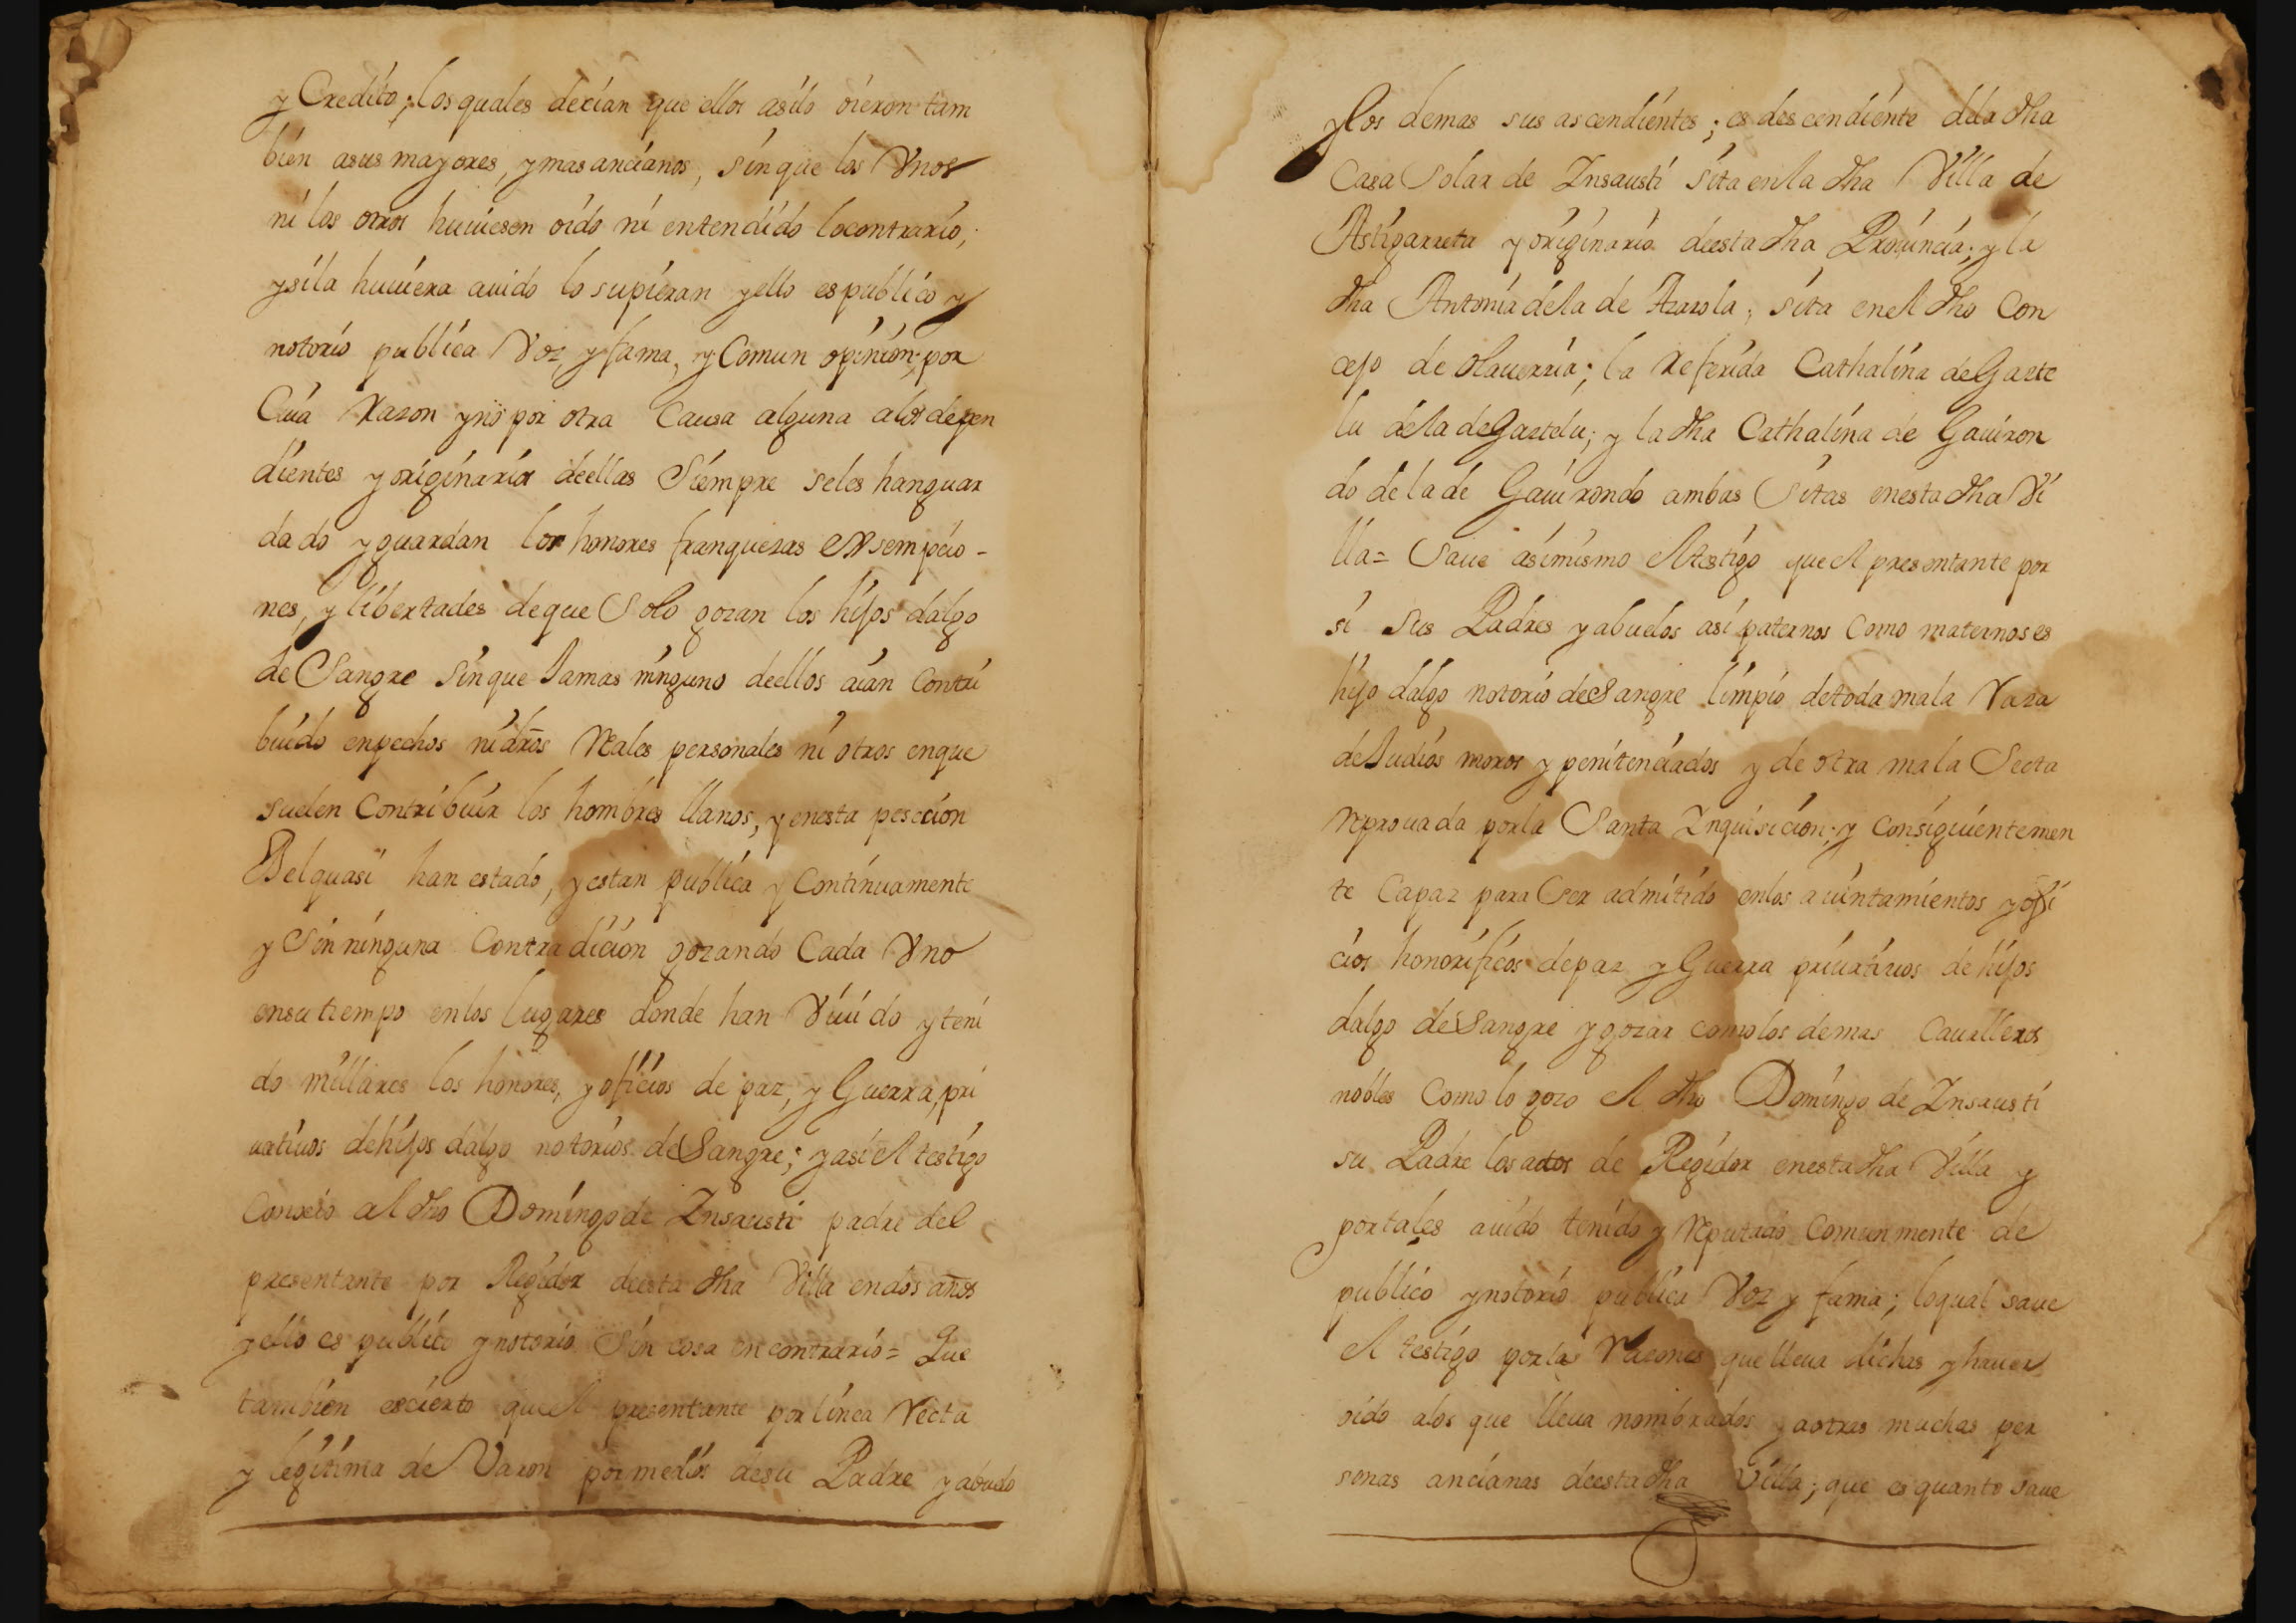 y Credito; los quales decian que ellos asilo oieron tam
bien asus mayores, ymas ancianos, sinque los Vnos
ni los otros huuiesen oido ni entendido locontrario,
ysila huuiera auido lo supieran yello espublico y
notorio publica Voz, y fama, y Comun opinion; por
Cuia Razon yno por otra Causa alguna alos depen
dientes y originarios deellas Siempre seles hanguar
dado yguardan los honores franquezas exsempcio-
nes, y libertades deque Solo gozan los hijos dalgo
de Sangre sinque Jamas ninguno deellos aian Contri
buido enpechos nidros Reales personales ni otros enque
suelen Contribuir los hombres llanos, yenesta pesecion
Belquasi han estado, yestan publica y Continuamente
y Sin ninguna Contradicion gozando Cada Vno
ensu tiempo enlos lugares donde han Viuido yteni
do millares los honores, y oficios de paz, y Guerra, pri
uatiuos dehijos dalgo notorios deSangre; yasi el testigo
Conocio al dho Domingo de Insausti padre del
presentante por Regidor deesta dha Villa endos años
yello es publico ynotorio Sin cosa en contrario = Que
tambien escierto queel presentante por linea Recta
y legitima de Varon por medios desu Padre yabuelo
ylos demas sus ascendientes; es descendiente dela dha
Casa Solar de Insausti sita enla dha Villa de
Astigarreta yoriginario deesta dha Prouincia; y la
dha Antonia dela de Arazola, sita enel dho Con
cejo de Olauerria; la Referida Cathalina deGazte
lu dela deGaztelu; y la dha Cathalina de Gauiron
do dela de Gauirondo ambas Sitas enesta dha Vi
lla = Saue asimismo el testigo queel presentante por
si sus Padres yabuelos asi paternos Como maternos es
hijo dalgo notorio deSangre limpio detoda mala Raza
deJudios moros y penitenciados y de otra mala Secta
Reprouada porla Santa Inquisicion; y Consiguientemen
te Capaz para Ser admitido enlos aiuntamientos yofi
cios honorificos depaz y Guerra priuatiuos de hijos
dalgo deSangre ygozar comolos demas Caualleros
nobles Comolo gozo el dho Domingo de Insausti
su Padre los actos de Regidor enesta dha Villa y
portales auido tenido y Reputado Comunmente de
publico ynotorio publica Voz y fama; loqual saue
el testigo porlas Razones que lleua dichas yhauer
oido alos que lleua nombrados yaotras muchas per
sonas ancianas deesta dha Villa; que es quanto saue